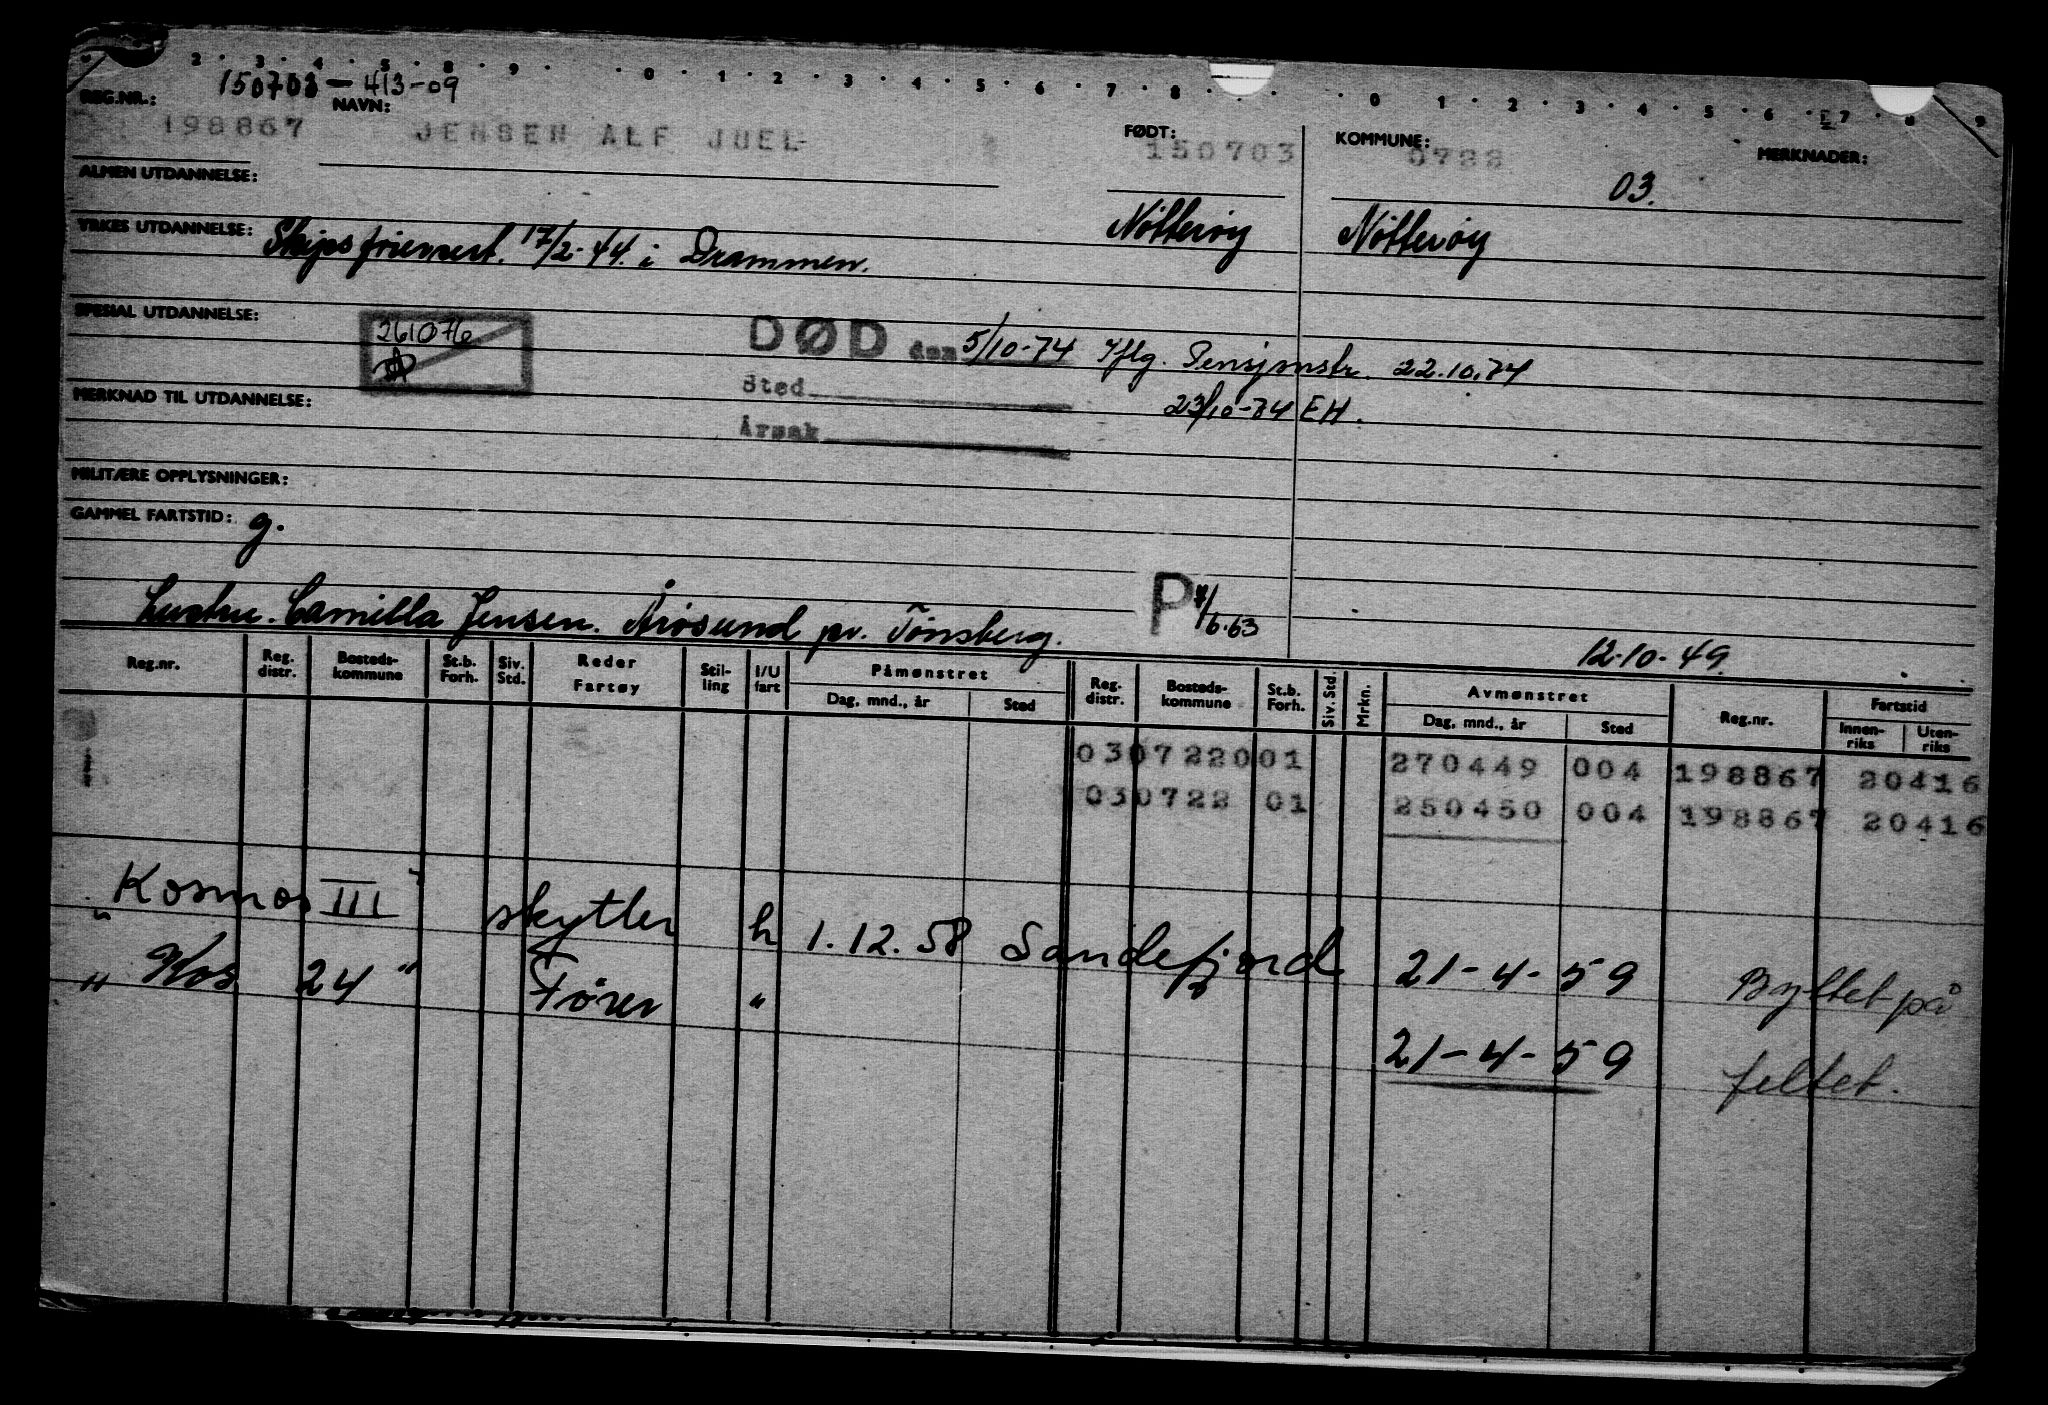 2 · 3 · 4 · 5 · 8 · 9 · · 0 · 1 · 2 · 3 · 4 · 5 · 6 · 7 · 8 · · · 0 1 · 2 · 3 · 4 · 5 · 6 · 7 · 8 9
150703 - 413-09
REG.NR.: NAVN: FØDT: KOMMUNE: MERKNADER:
198867 JENSEN ALF JUEL 150703 0722
03.
ALMEN UTDANNELSE:
YRKES UTDANNELSE: Skipsförersert. 17/2-44. i Drammen. Nötteröy Nötteröy
SPESIAL UTDANNELSE:
261076
DØD den 5/10-74 Iflg. Pensjonstr. 22.10.74
Sted 23/10-74 EH.
MERKNAD TIL UTDANNELSE:
Årsak
MILITÆRE OPPLYSNINGER:
GAMMEL FARTSTID: g.
P 4/6.63
Hustru. Camilla Jensen. Årösund pr. Tönsberg.
12-10-49
Reg.nr. Reg. distr. Bosteds-kommune St.b. Forh. Siv. Std. Reder Fartøy Stil-ling I/U fart Påmønstret Dag, mnd., år Sted Reg. distr. Bosteds-kommune St.b. Forh. Siv. Std. Mrkn. Avmønstret Dag, mnd., år Sted Reg.nr. Fartstid Innen-riks Uten-riks
030722001 270449 004 198867 20416
030722 01 250450 004 198867 20416
"Kosmos III" skytter h 1.12.58 Sandefjord 21-4-59 Byttet på
"Kos 24" Förer " 21-4-59 feltet.